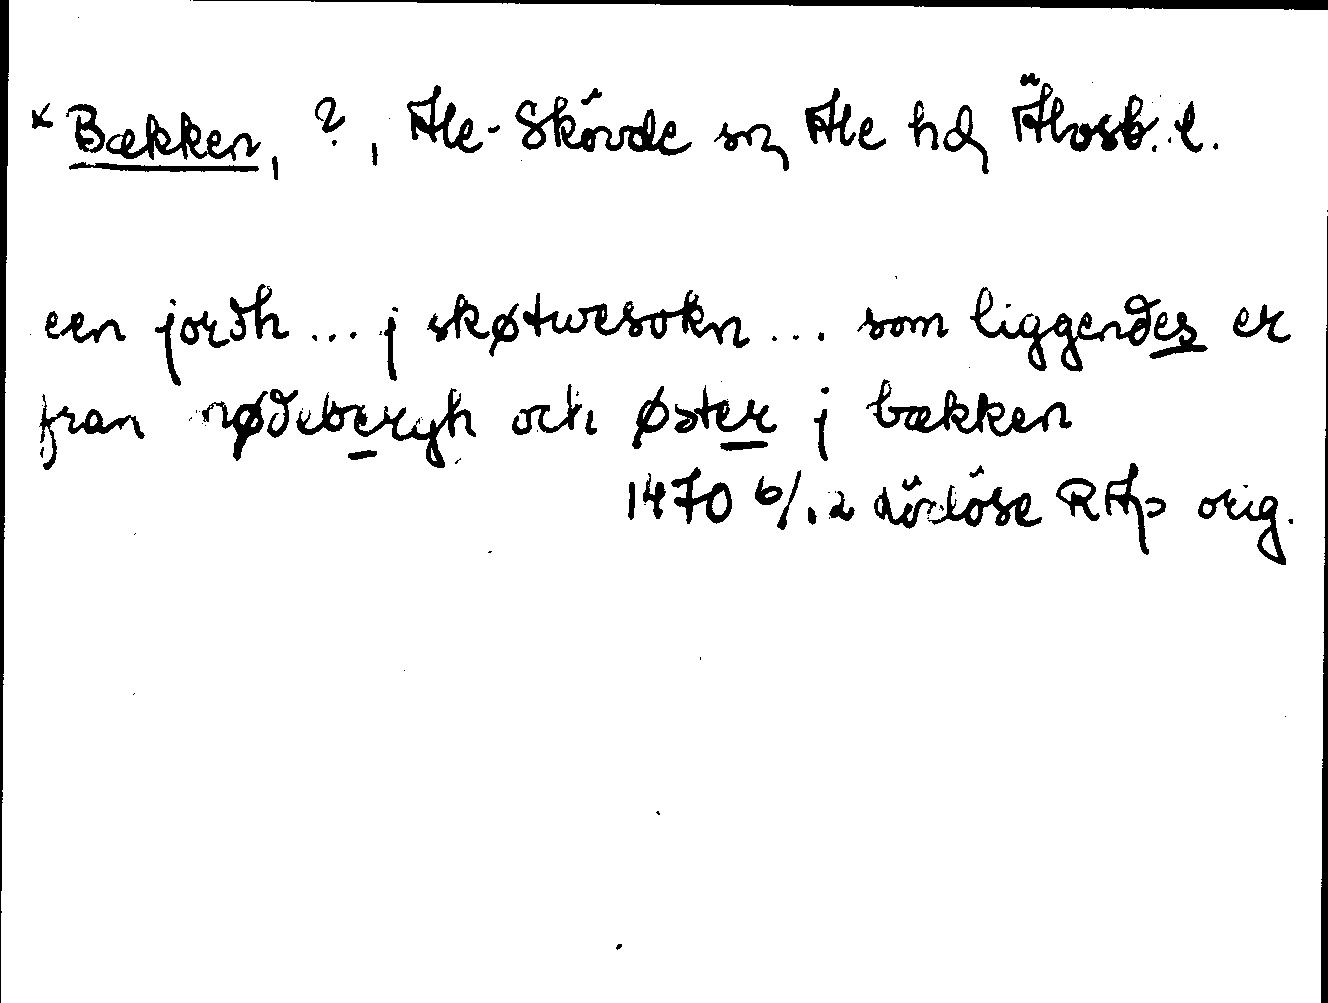 × Bækken, ?, Ale-Skövde sn, Ale hd, Älvsb. l.
een jordh ... j skøtwesokn ... som liggendes er
fran nødebergh och øster j bækken
1470 6/12 Lödöse RAp orig.